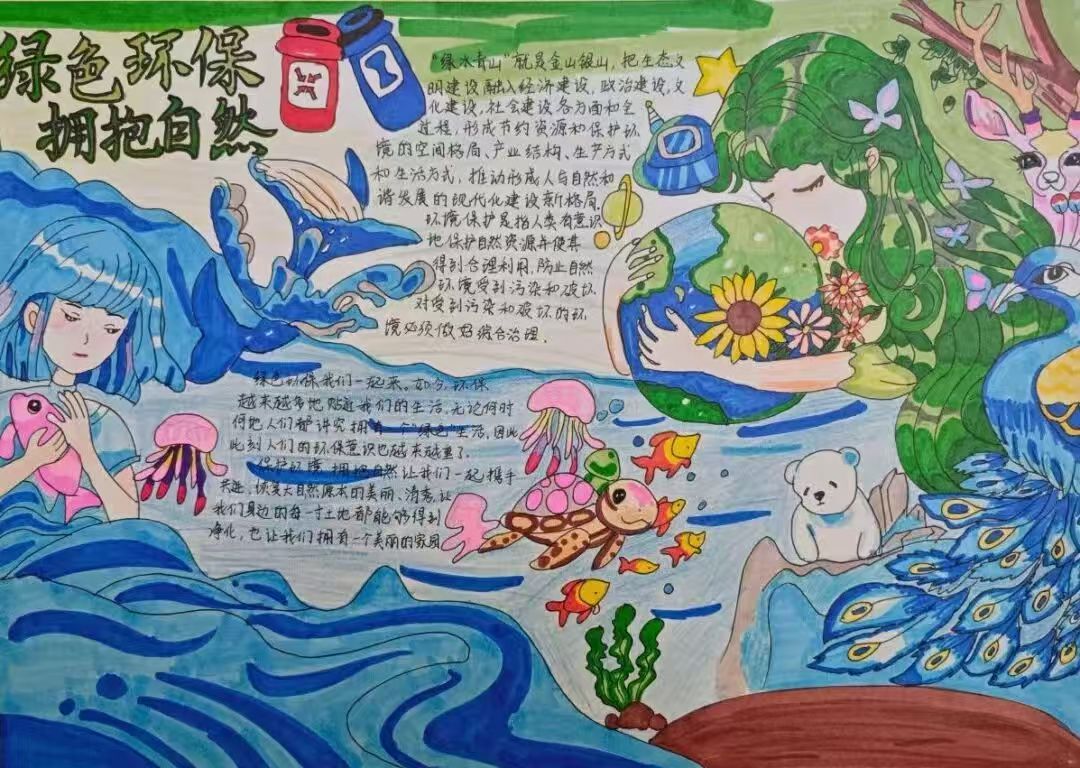 绿色环保
拥抱自然
"绿水青山"就是金山银山，把生态文
明建设融入经济建设，政治建设，文
化建设，社会建设各方面和全
过程，形成节约资源和保护环
境的空间格局、产业结构、生产方式
和生活方式，推动形成人与自然和
谐发展的现代化建设新格局，
环境保护是指人类有意识
地保护自然资源并使其
得到合理利用，防止自然
环境受到污染和破坏
对受到污染和破坏的环
境必须做好综合治理．
绿色环保我们一起来。如今，环保
越来越多地贴近我们的生活，无论何时
何地人们都讲究拥有一个"绿色"生活，因此
此刻人们的环保意识也越来越重了，
保护环境，拥抱自然让我们一起携手
共进，恢复大自然原本的美丽、清秀，让
我们身边的每一寸土地都能够得到
净化，也让我们拥有一个美丽的家园